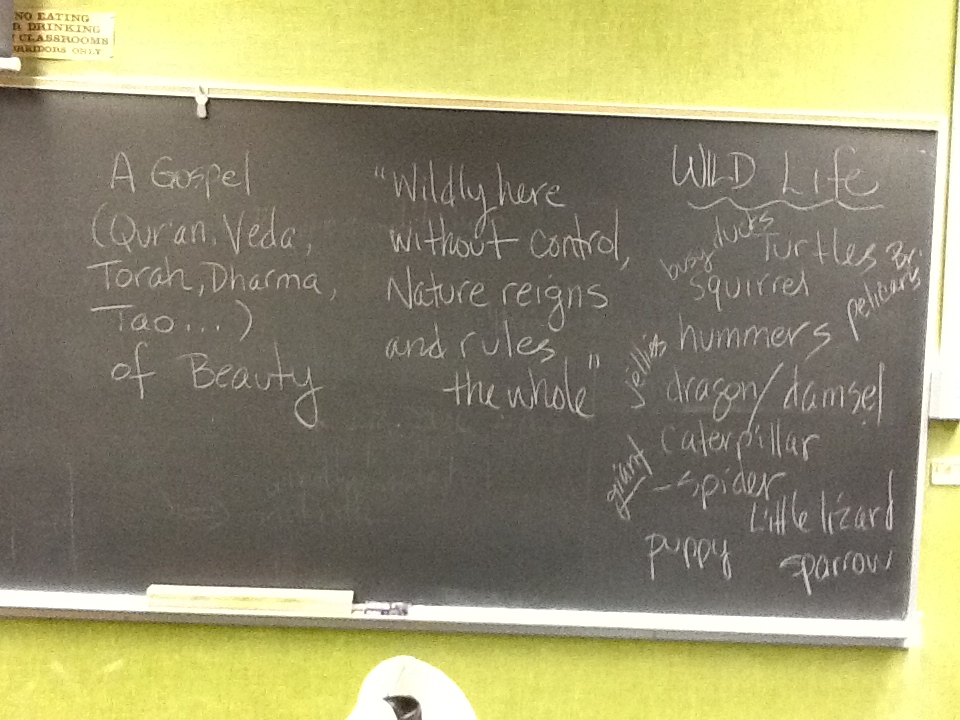 NO EATING
R DRINKING
CLASSROOMS
RRIDORS ONLY
A Gospel
(Quran, Veda,
Torah, Dharma,
Tao...)
of Beauty
"Wildly here
without control,
Nature reigns
and rules
the whole"
WILD Life
ducks
Turtles
Br.
pelicans
busy
squirrel
hummers
jellies
dragon/damsel
caterpillar
giant
-spider
Little lizard
puppy
sparrow